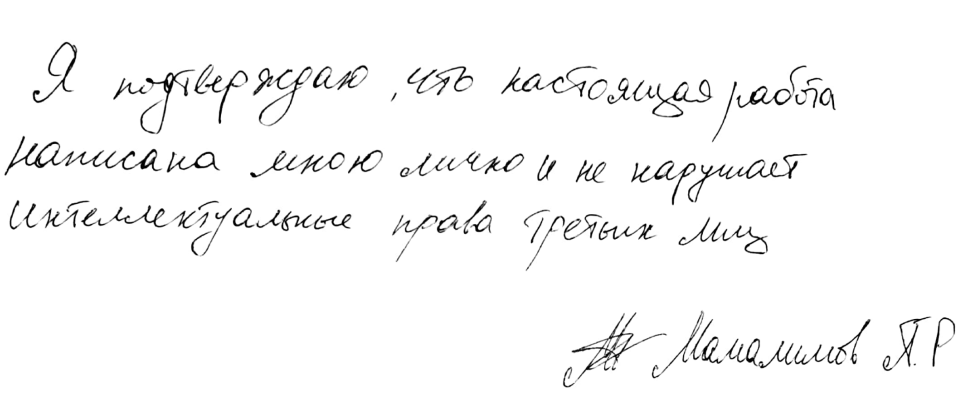 Я подтверждаю, что настоящая работа
написана мною лично и не нарушает
интеллектуальные права третьих лиц
Мамалимов П.Р